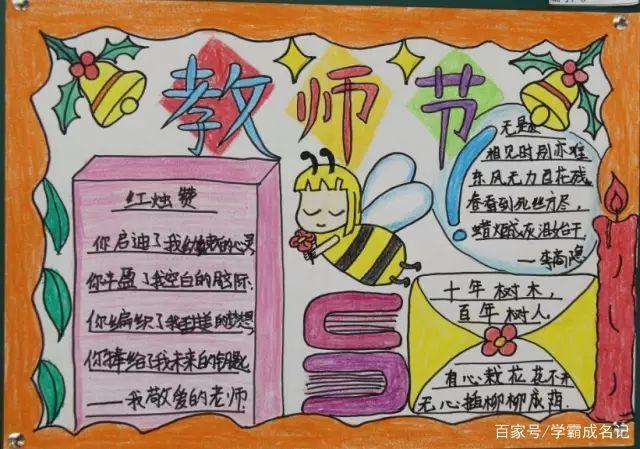 教师节
红烛赞
你启迪了我幼稚的心灵
你丰盈了我空白的脑际
你编织了我的梦想
你捧给了我未来的钥匙
——我敬爱的老师
无题
相见时别亦难
东风无力百花残
春蚕到死丝方尽,
蜡炬成灰泪始干.
—李商隐
十年树木,
百年树人
有心栽花花不开
无心插柳柳成荫.
百家号/学霸成名记